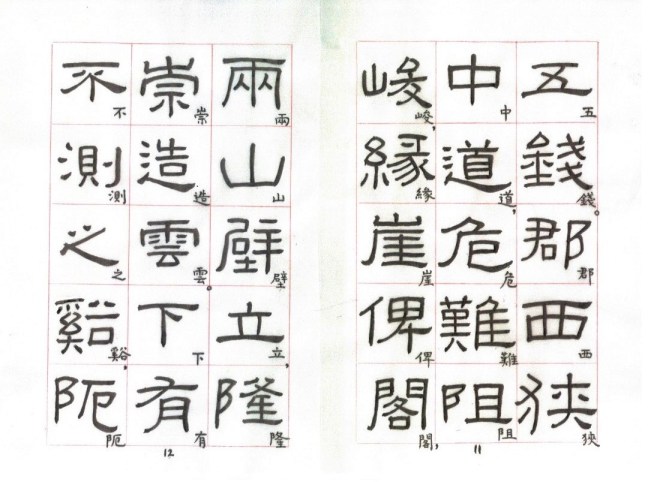 五錢郡西狹
五錢。郡西狹
中道危難阻
中道,危難阻
峻緣崖俾閣
峻,緣崖俾閣,
11
兩山壁立隆
兩山壁立,隆
崇造雲下有
崇造雲。下有
不測之谿阨
不測之谿,阨
12